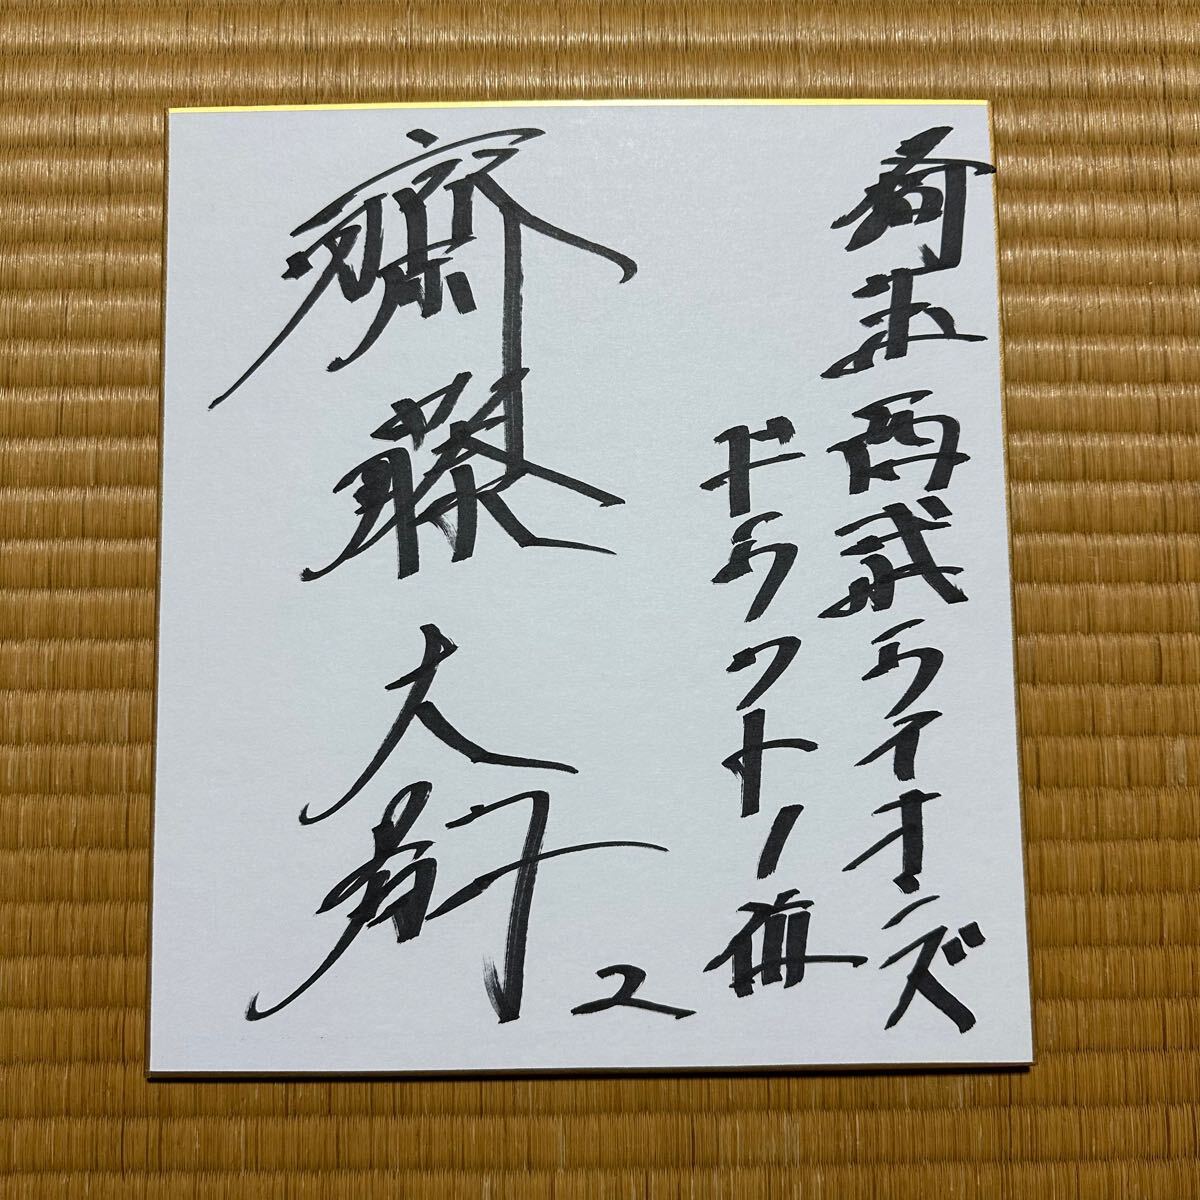 埼玉西武ライオンズ
ドラフト1位
齋藤大翔 2